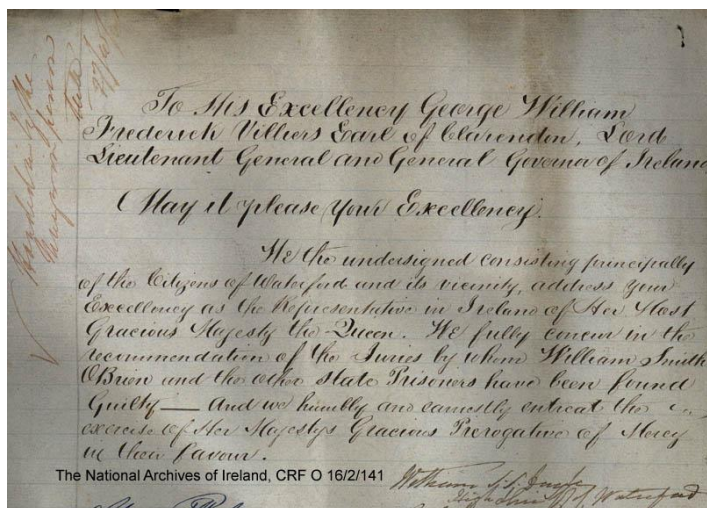 Handed in by the
Mayor
27
To His Excellency George William
Frederick Villiers Earl of Clarendon, Lord
Lieutenant General and General Governor of Ireland
May it please Your Excellency.
We the undersigned consisting principally
of the Citizens of Waterford and its vicinity, address your
Excellency as the Representative in Ireland of Her Most
Gracious Majesty the Queen. We fully concur in the
recommendation of the Juries by whom William Smith
OBrien and the other State Prisoners have been found
Guilty — And we humbly and earnestly entreat the
exercise of Her Majestys Gracious Prerogative of Mercy
in their favour.
The National Archives of Ireland, CRF O 16/2/141
William
High Sheriff of Waterford